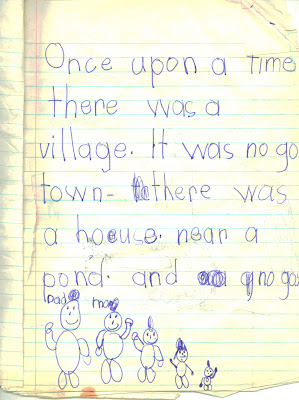 Once upon a time
there was a
village. It was no go
town- there was
a house. near a
pond. and a no go
Dad mom